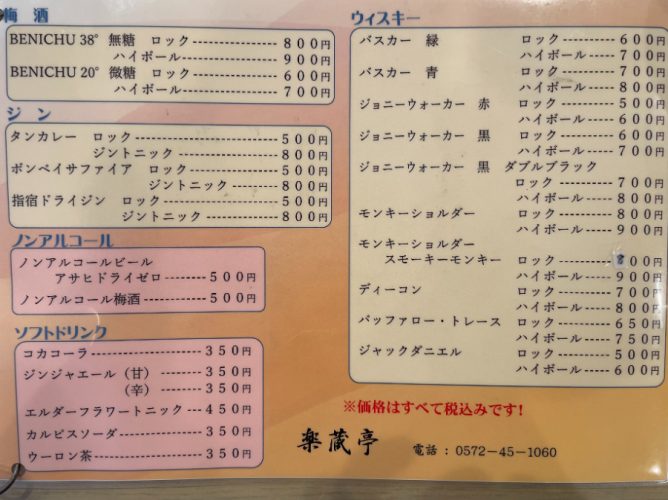 梅酒
BENICHU 38° 無糖 ロック ------------ 800円
ハイボール ------------ 900円
BENICHU 20° 微糖 ロック ------------ 600円
ハイボール ------------ 700円
ジン
タンカレー ロック ------------ 500円
ジントニック ------------ 800円
ボンベイサファイア ロック ------------ 500円
ジントニック ------------ 800円
指宿ドライジン ロック ------------ 500円
ジントニック ------------ 800円
ノンアルコール
ノンアルコールビール
アサヒドライゼロ -------- 500円
ノンアルコール梅酒 ------ 500円
ソフトドリンク
コカコーラ -------------- 350円
ジンジャエール(甘) ----- 350円
(辛) ----- 350円
エルダーフラワートニック --- 450円
カルピスソーダ ---------- 350円
ウーロン茶 -------------- 350円
ウィスキー
バスカー 緑 ロック ---------- 600円
ハイボール ---------- 700円
バスカー 青 ロック ---------- 700円
ハイボール ---------- 800円
ジョニーウォーカー 赤 ロック ---------- 500円
ハイボール ---------- 600円
ジョニーウォーカー 黒 ロック ---------- 600円
ハイボール ---------- 700円
ジョニーウォーカー 黒 ダブルブラック
ロック ---------- 700円
ハイボール ---------- 800円
モンキーショルダー ロック ---------- 800円
ハイボール ---------- 900円
モンキーショルダー
スモーキーモンキー ロック ---------- 800円
ハイボール ---------- 900円
ディーコン ロック ---------- 700円
ハイボール ---------- 800円
バッファロー・トレース ロック ---------- 650円
ハイボール ---------- 750円
ジャックダニエル ロック ---------- 500円
ハイボール ---------- 600円
※価格はすべて税込みです!
楽蔵亭 電話:0572-45-1060